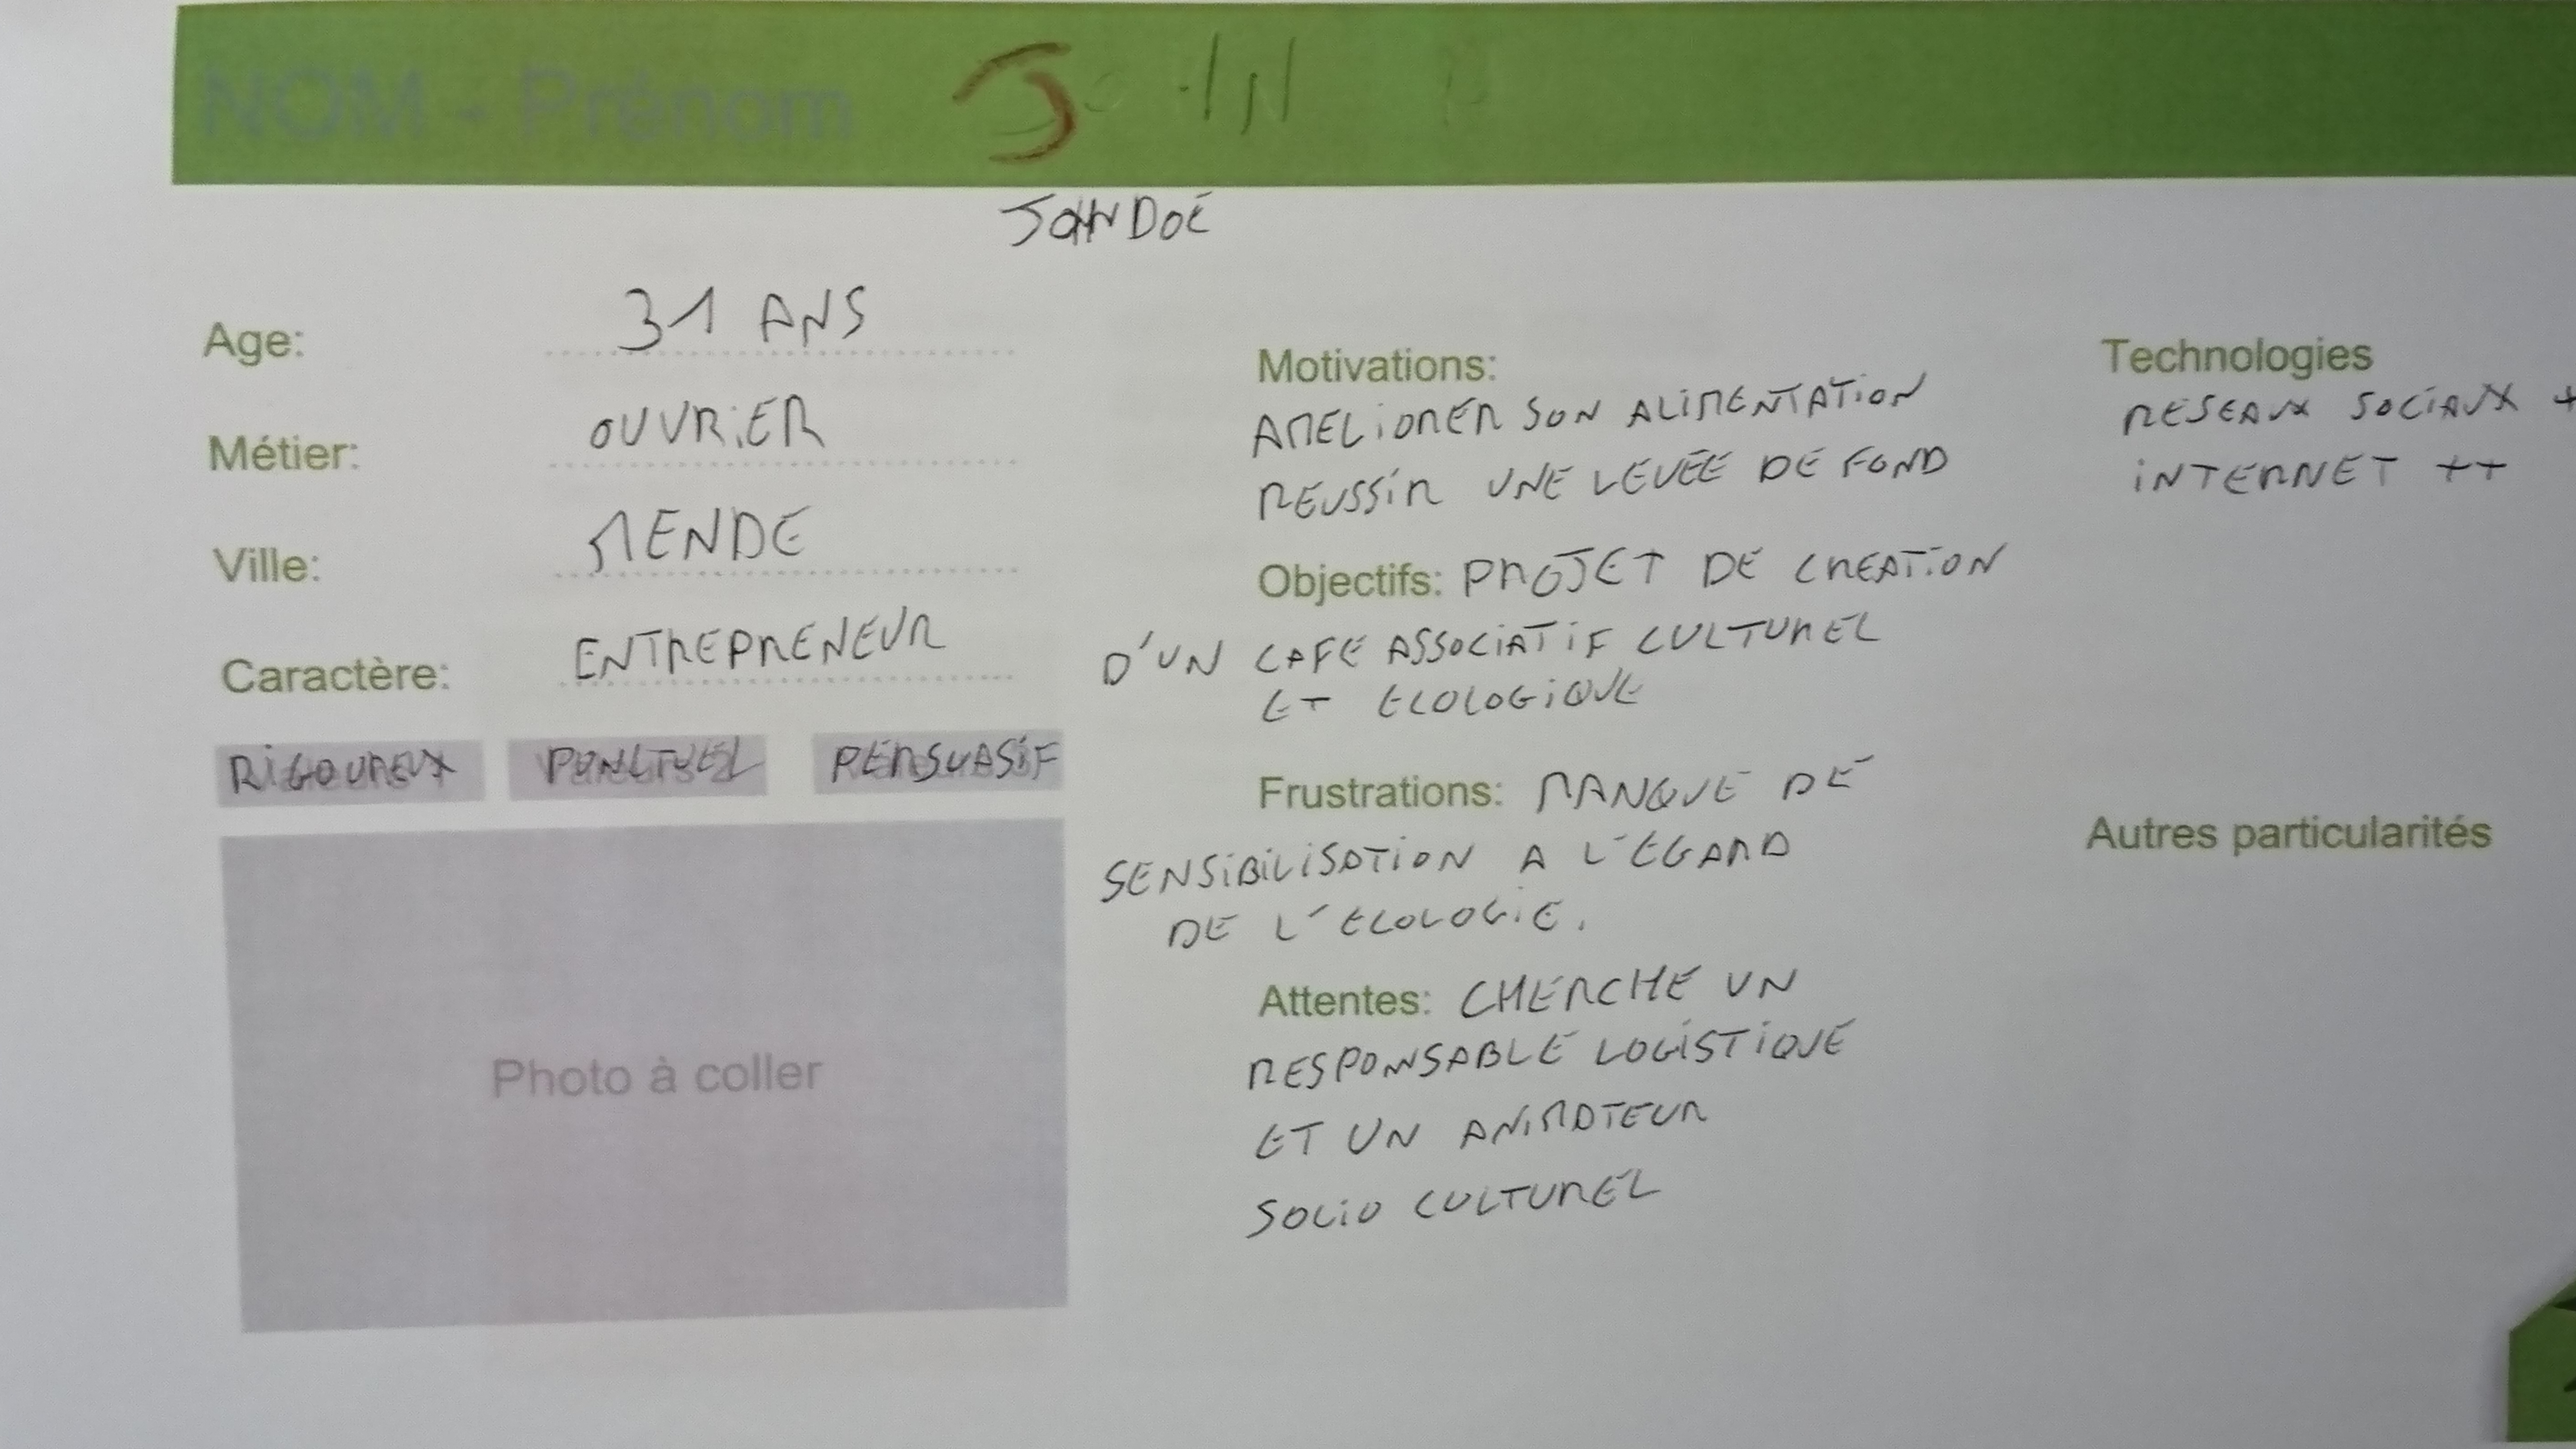 NOM - Prénom JOHN D
JOHN DOE
Age: 31 ANS
Métier: OUVRIER
Ville: MENDE
Caractère: ENTREPRENEUR
RIGOUREUX PONCTUEL PERSUASIF
Photo à coller
Motivations:
AMELIORER SON ALIMENTATION
REUSSIR UNE LEVÉE DE FOND
Objectifs: PROJET DE CREATION
D'UN CAFE ASSOCIATIF CULTUREL
ET ECOLOGIQUE
Frustrations: MANQUE DE
SENSIBILISATION A L'EGARD
DE L'ECOLOGIE.
Attentes: CHERCHE UN
RESPONSABLE LOGISTIQUE
ET UN ANIMATEUR
SOCIO CULTUREL
Technologies
RESEAUX SOCIAUX +
INTERNET ++
Autres particularités